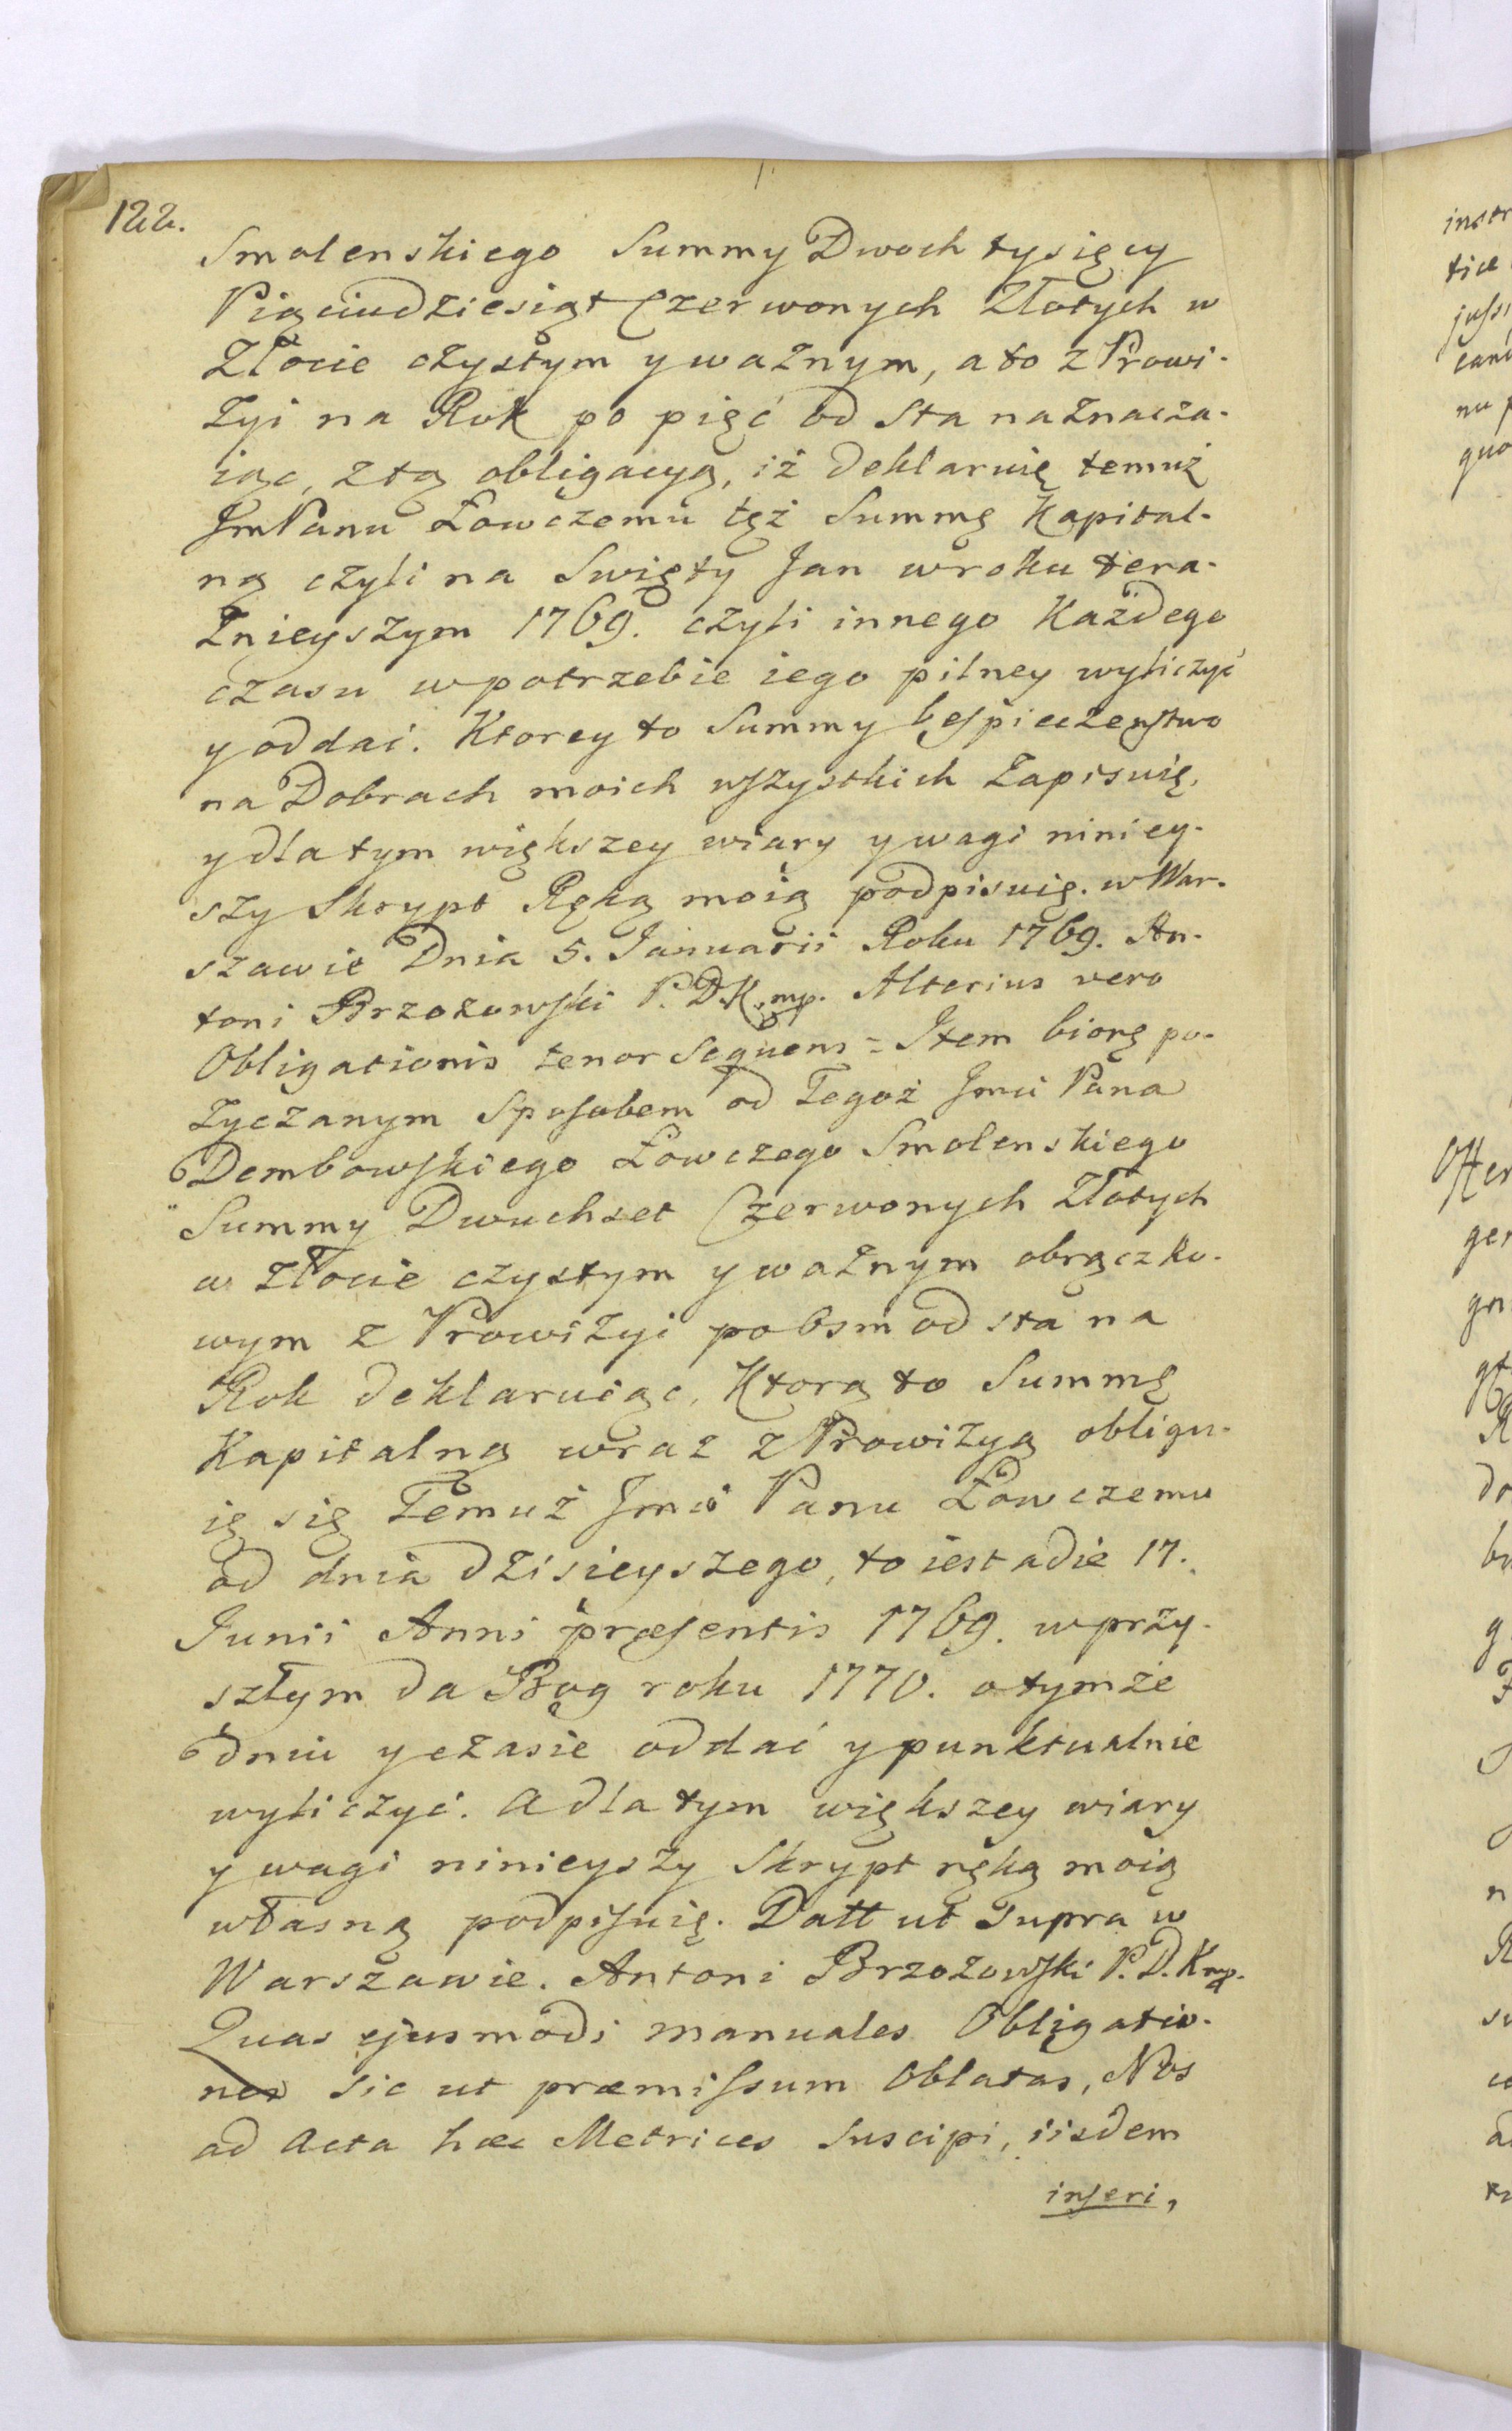 122.
Smolenskiego Summy Dwoch tysięcy
Pięciudziesiąt Czerwonych Złotych w
Złocie czystym y ważnym, a to z Prowi-
zyi na Rok po pięć od Sta naznacza-
iąc, z tą obligacyą, iż deklaruię temuż
JmPanu Łowczemu też Summę Kapital-
ną czyli na Swięty Jan w roku tera-
znieyszym 1769. czyli innego Każdego
czasu w potrzebie iego pilney wyliczyć
y oddać. Ktorey to Summy beśpieczeństwo
na Dobrach moich wszystkich Zapisuię,
y dla tym większey wiary y wagi niniey-
szy Skrypt Ręką moią podpisuię. w War-
szawie Dnia 5. Januarii Roku 1769. An-
toni Brzozowski P. D. K. mp. Alterius vero
Obligationis tenor Sequens = Item biorę po-
życzanym Sposobem od Tegoż Jmci Pana
Dembowskiego Łowczego Smolenskiego
Summy Dwuchset Czerwonych Złotych
w Złocie czystym y ważnym obrączko-
wym z Prowizyi po osm od sta na
Rok deklaruiąc, Ktorą to Summę
Kapitalną wraz z Prowizyą obligu-
ię się Temuż Jmci Panu Łowczemu
od dnia dzisieyszego, to iest a die 17.
Junii Anni præsentis 1769. w przy-
szłym da Bog roku 1770. o tymże
dniu y czasie oddać y punktualnie
wyliczyć. A dla tym większey wiary
y wagi ninieyszy Skrypt ręką moią
własną podpisuię. Datt ut Supra w
Warszawie. Antoni Brzozowski P. D. K mp.
Quas ejusmodi manuales Obligatio-
nes sic ut præmissum Oblatas, Nos
ad Acta hæc Metrices Suscipi, iisdem
inseri,